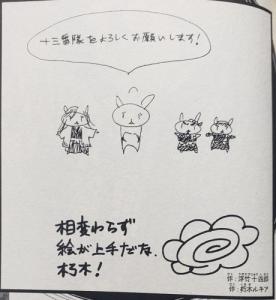 十三番隊をよろしくお願いします!
相変わらず
絵が上手だな、
朽木!
作:浮竹十四郎
作:朽木ルキア